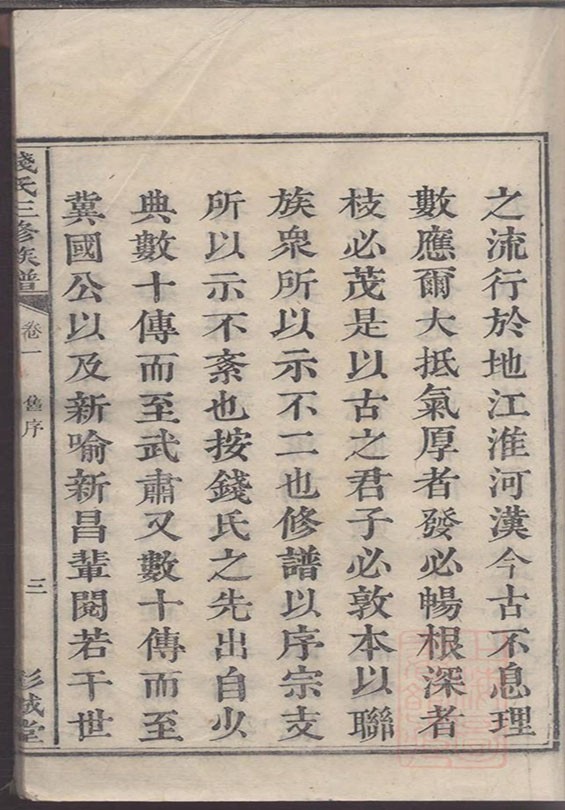 之流行於地江淮河漢今古不息理
數應爾大抵氣厚者發必暢根深者
枝必茂是以古之君子必敦本以聯
族衆所以示不二也修譜以序宗支
所以示不紊也按錢氏之先出自少
典數十傳而至武肅又數十傳而至
冀國公以及新喻新昌輩閱若干世
錢氏三修族譜
卷一 舊序
三
彭城堂